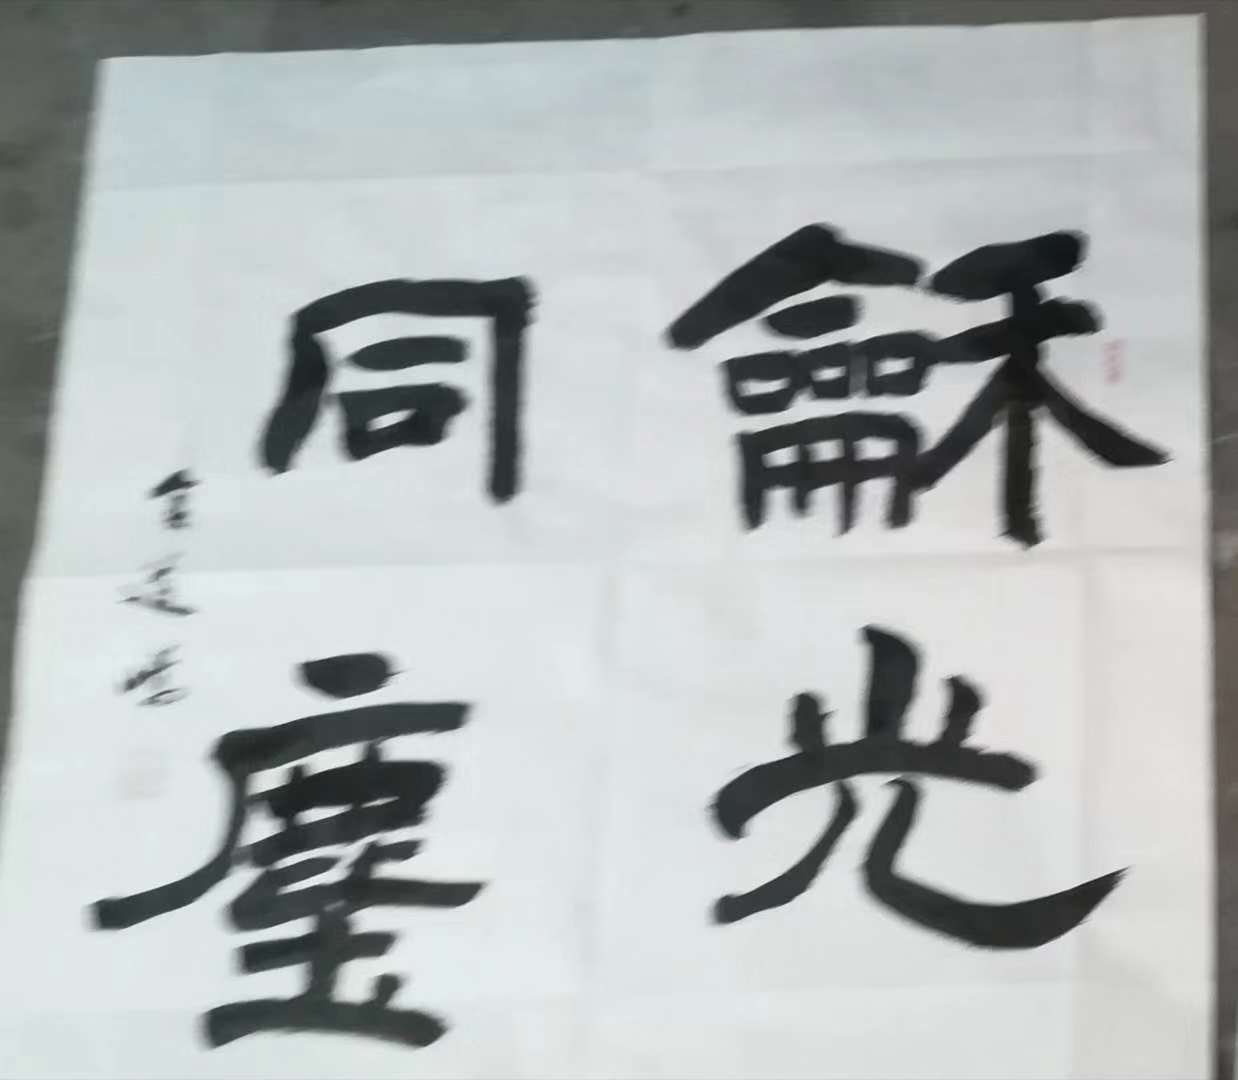 龢光
同塵